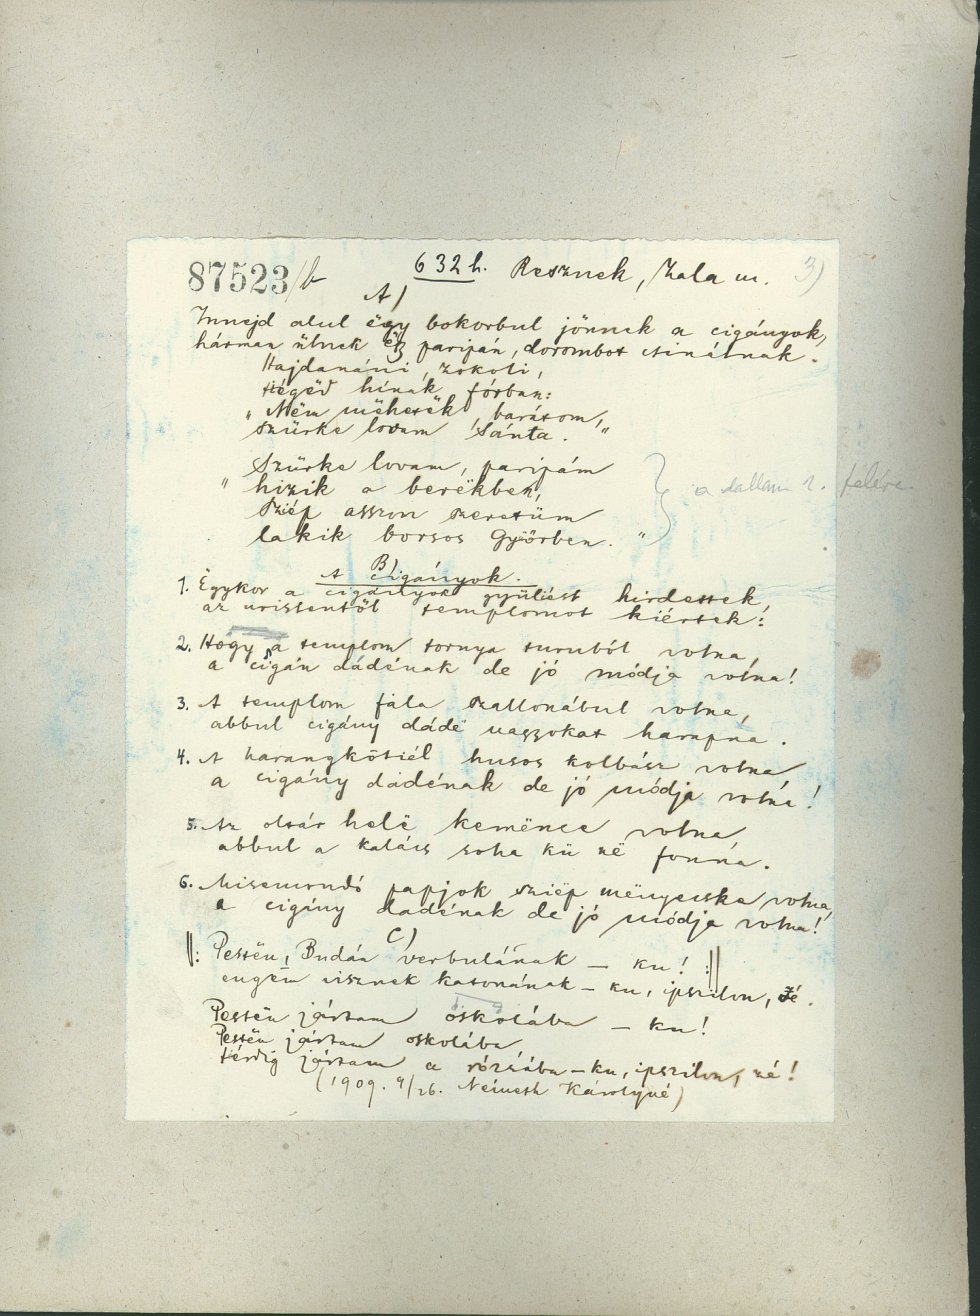 87523/b 632h. Resznek, Zala m. 3)
A)
Innejd alul ëgy bokorbul jönnek a cigányok,
hárman ülnek ëgy paripán, dorombot csinálnak.
Hajdanáni, zokoli,
Hégëd hínák fórban:
"Nëm mëhetëk, barátom,
szürke lovam sánta."
Szürke lovam, paripám
"hizik a berëkben,
Sziép asszon szeretüm
lakik borsos Győrben."
a dallam 2. felére
B)
A cigányok.
1. Ëgykor a cigányok gyülést hirdettek,
az uristentől templomot kiértek:
2. Hogy a templom tornya turuból volna,
a cigán dádénak de jó módja volna!
3. A templom fala szallonábul volna,
abbul cigány dádë naggyokat harapna.
4. A harangkötiél husos kolbász volna
a cigány dádénak de jó módja volna!
5. Az oltár helë kemënce volna,
abbul a kalács soha kü në fonna.
6. Misemondó papjok sziëp mënyecske volna,
a cigány dadénak de jó módja volna!
C)
‖: Pestën, Budán verbulának – ku! :‖
engëm visznek katonának – ku, ipszilon, zé.
Pestën jártam oskolába – ku!
Pestën jártam oskolába
térdig jártam a rózsába – ku, ipszilon, zé!
(1909. 9/26. Németh Károlyné)